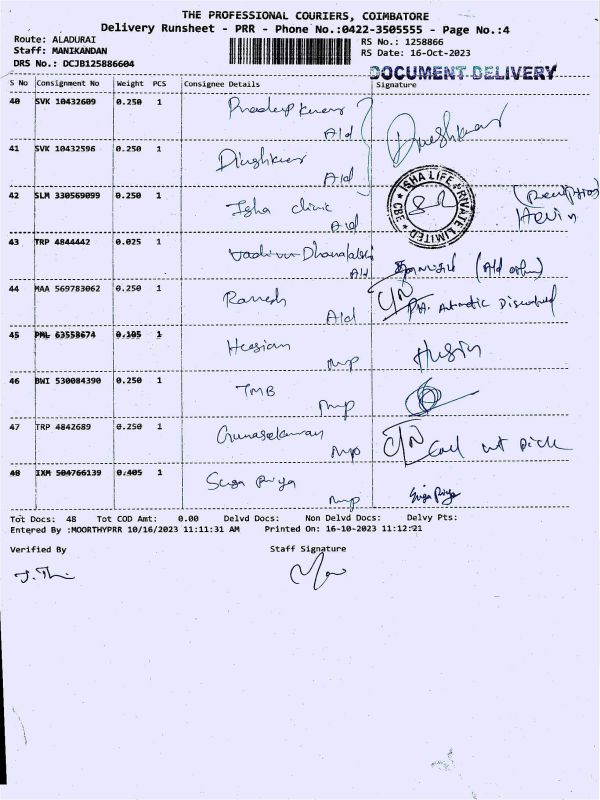 THE PROFESSIONAL COURIERS, COIMBATORE
Delivery Runsheet - PRR - Phone No.:0422-3505555 - Page No.:4
Route: ALADURAI
RS No.: 1258866
Staff: MANIKANDAN
RS Date: 16-Oct-2023
DRS No.: DCJB125886604
DOCUMENT DELIVERY
S No Consignment No Weight PCS Consignee Details Signature
40 SVK 10432609 0.250 1 Pradeep kumar Ald
41 SVK 10432596 0.250 1 Dineshkumar Ald Dineshkumar
42 SLM 330569099 0.250 1 Isha clinic Ald
ISHA LIFE PRIVATE LIMITED CBE
(Reception)
43 TRP 4844442 0.025 1 Ald
44 MAA 569783062 0.250 1 Ramesh Ald C/N
45 PML 63553674 0.105 1 mp
46 BWI 530084390 0.250 1 TMB mp
47 TRP 4842689 0.250 1 Gunasekaran mp C/N Call not Pick
48 IXM 504766139 0.405 1 Suga Priya mp Suga Priya
Tot Docs: 48 Tot COD Amt: 0.00 Delvd Docs: Non Delvd Docs: Delvy Pts:
Entered By :MOORTHYPRR 10/16/2023 11:11:31 AM Printed On: 16-10-2023 11:12:21
Verified By Staff Signature